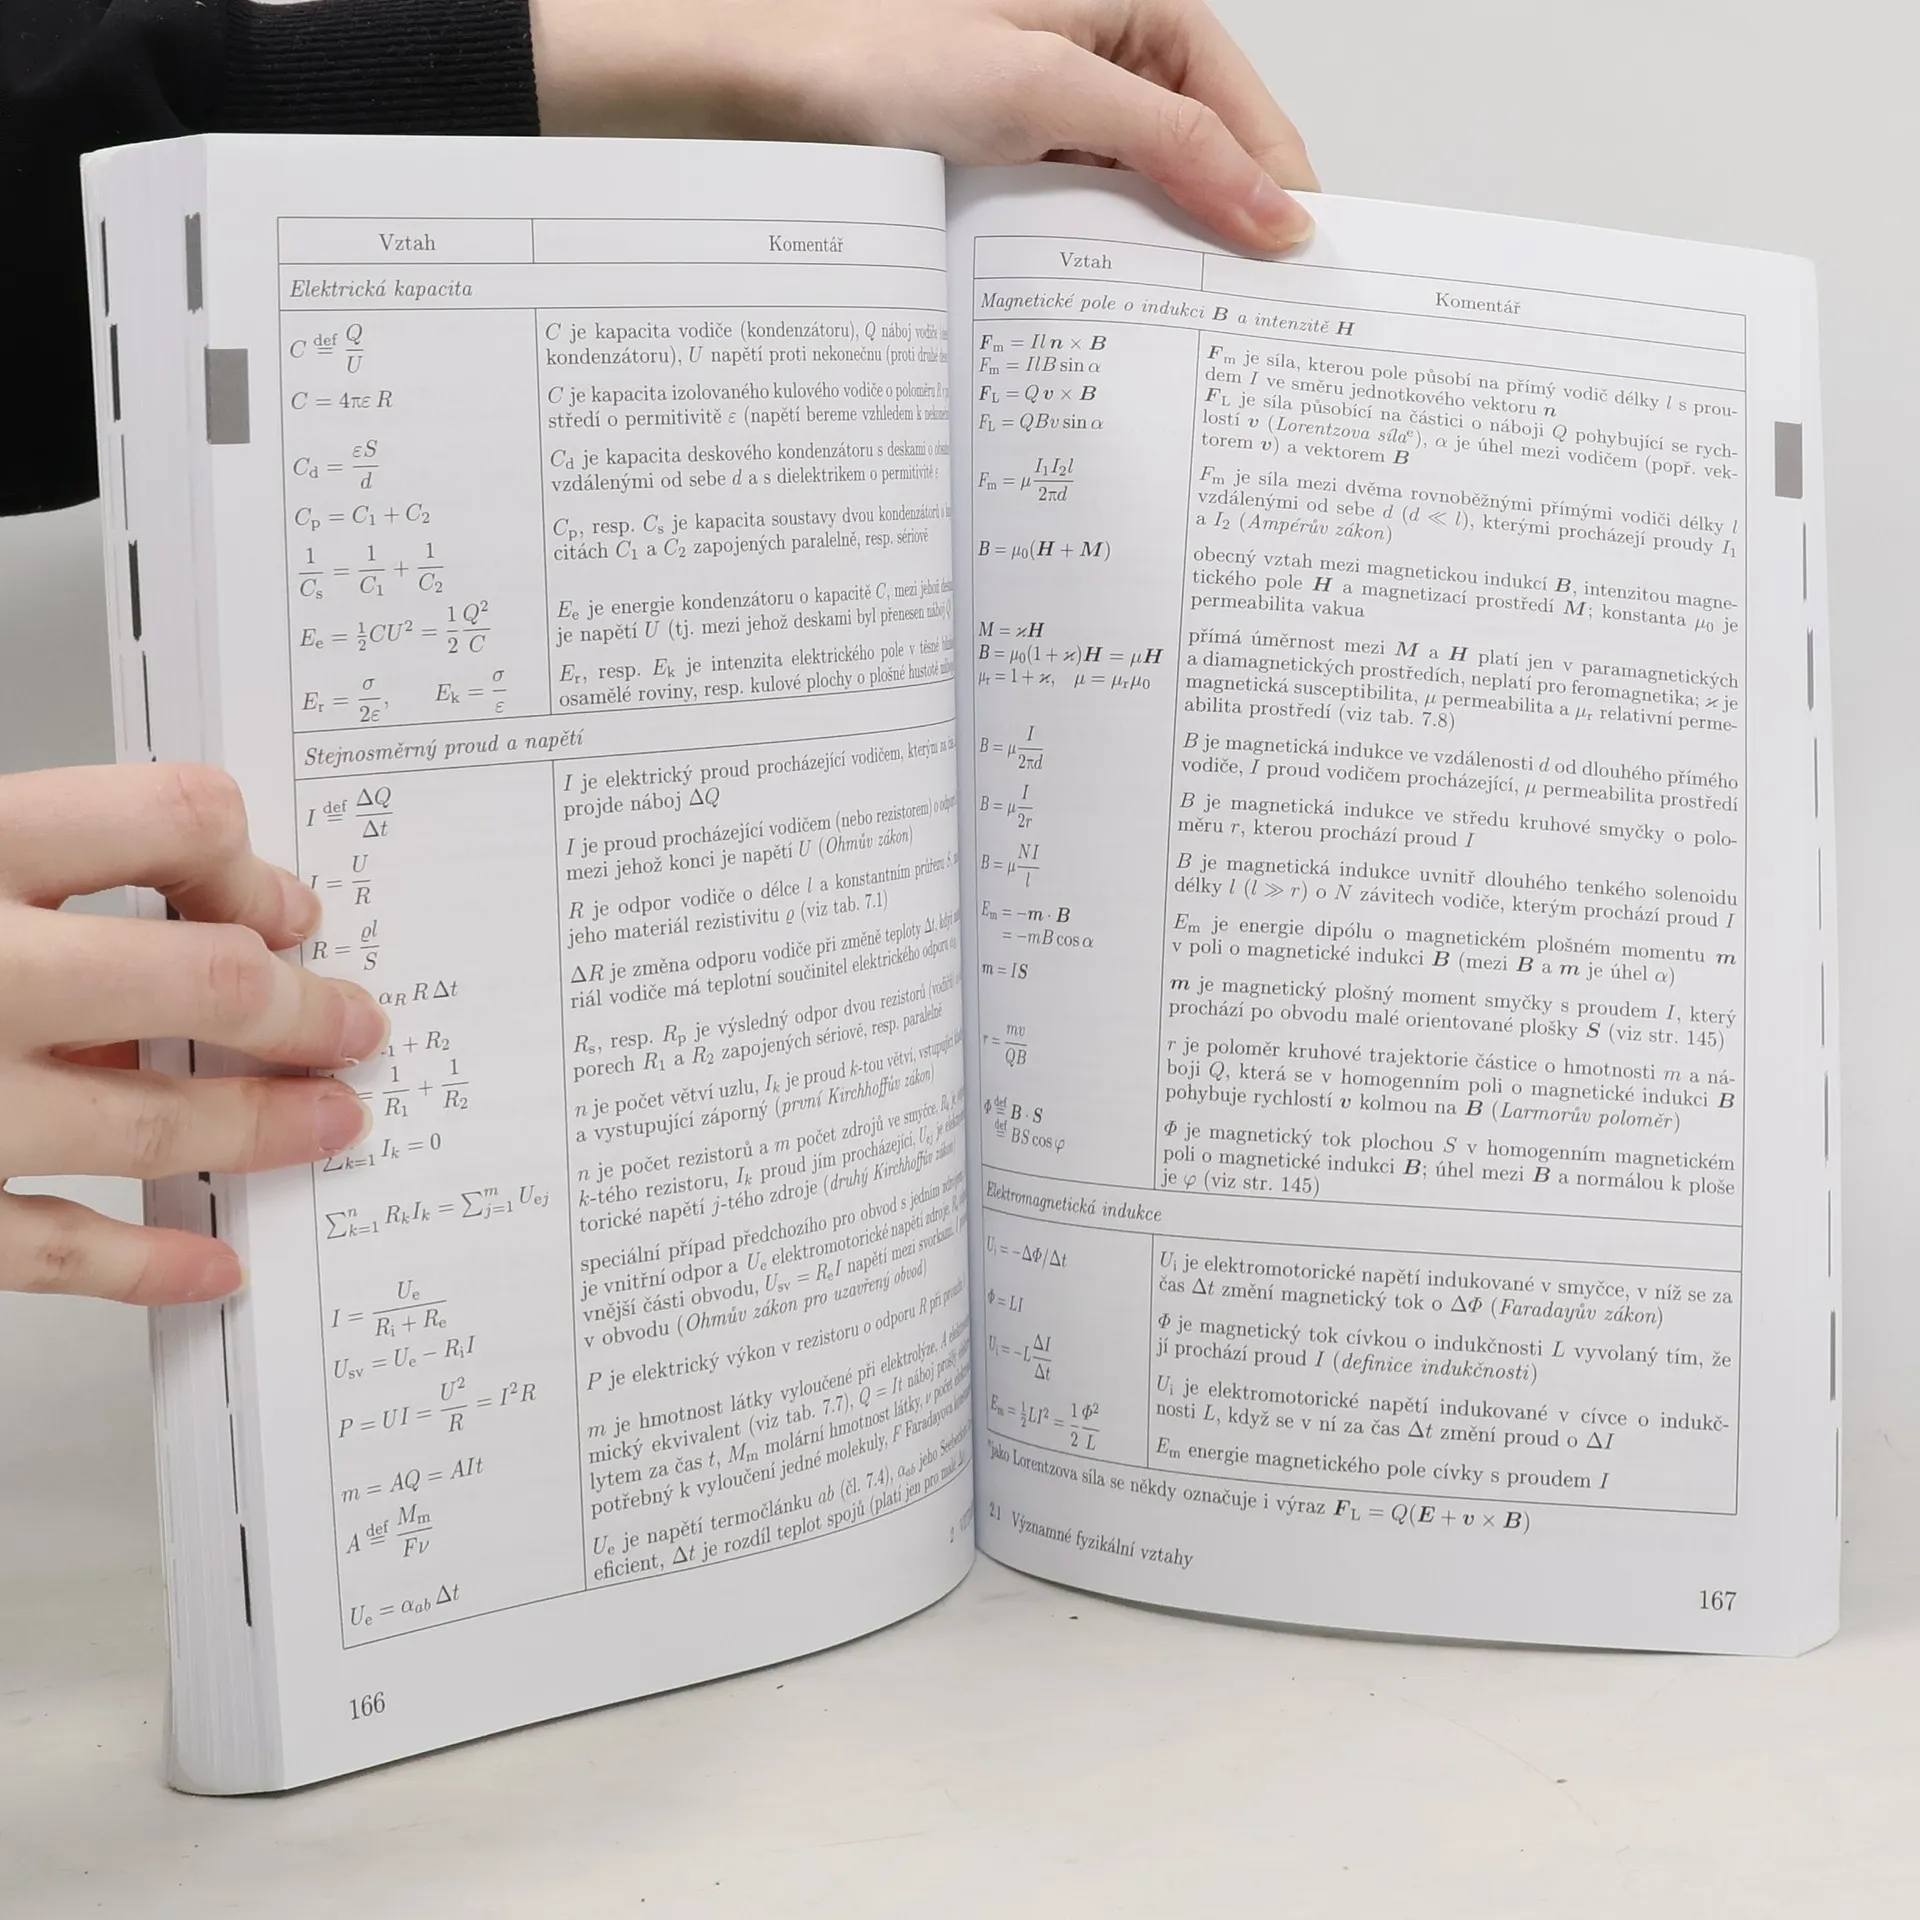 Vztah Komentář
Elektrická kapacita
C def= Q/U
C je kapacita vodiče (kondenzátoru), Q náboj vodiče
kondenzátoru), U napětí proti nekonečnu (proti druhé
C = 4πε R
C je kapacita izolovaného kulového vodiče o poloměru R v
středí o permitivitě ε (napětí bereme vzhledem k
C_d = εS/d
C_d je kapacita deskového kondenzátoru s deskami o
vzdálenými od sebe d a s dielektrikem o permitivitě ε
C_p = C_1 + C_2
1/C_s = 1/C_1 + 1/C_2
C_p, resp. C_s je kapacita soustavy dvou kondenzátorů o
citách C_1 a C_2 zapojených paralelně, resp. sériově
E_e = ½CU² = 1/2 Q²/C
E_e je energie kondenzátoru o kapacitě C, mezi jehož
je napětí U (tj. mezi jehož deskami byl přenesen náboj Q
E_r = σ/2ε, E_k = σ/ε
E_r, resp. E_k je intenzita elektrického pole v těsné
osamělé roviny, resp. kulové plochy o plošné hustotě
Stejnosměrný proud a napětí
I def= ΔQ/Δt
I je elektrický proud procházející vodičem, kterým za
projde náboj ΔQ
I = U/R
I je proud procházející vodičem (nebo rezistorem) o
mezi jehož konci je napětí U (Ohmův zákon)
R = ϱl/S
R je odpor vodiče o délce l a konstantním průřezu S,
jeho materiál rezistivitu ϱ (viz tab. 7.1)
α_R R Δt
ΔR je změna odporu vodiče při změně teploty Δt, když
riál vodiče má teplotní součinitel elektrického odporu
+ R_2
= 1/R_1 + 1/R_2
R_s, resp. R_p je výsledný odpor dvou rezistorů
porech R_1 a R_2 zapojených sériově, resp. paralelně
k=1 I_k = 0
n je počet větví uzlu, I_k je proud k-tou větví, vstupující
a vystupující záporný (první Kirchhoffův zákon)
∑ⁿ_k=1 R_kI_k = ∑ᵐ_j=1 U_ej
n je počet rezistorů a m počet zdrojů ve smyčce, R_k je
k-tého rezistoru, I_k proud jím procházející, U_ej je
torické napětí j-tého zdroje (druhý Kirchhoffův zákon)
I = U_e/(R_i + R_e)
U_sv = U_e − R_iI
speciální případ předchozího pro obvod s jedním zdrojem,
je vnitřní odpor a U_e elektromotorické napětí zdroje, R_e
vnější části obvodu, U_sv = R_eI napětí mezi svorkami, I
v obvodu (Ohmův zákon pro uzavřený obvod)
P = UI = U²/R = I²R
P je elektrický výkon v rezistoru o odporu R při proudu
m = AQ = AIt
A def= M_m/Fν
m je hmotnost látky vyloučené při elektrolýze, A
mický ekvivalent (viz tab. 7.7), Q = It náboj prošlý
lytem za čas t, M_m molární hmotnost látky, ν počet
potřebný k vyloučení jedné molekuly, F Faradayova
U_e = α_ab Δt
U_e je napětí termočlánku ab (čl. 7.4), α_ab jeho Seebeckův
eficient, Δt je rozdíl teplot spojů (platí jen pro malé Δt
166
2
Vztah Komentář
Magnetické pole o indukci B a intenzitě H
F_m = Il n × B
F_m = IlB sin α
F_L = Q v × B
F_L = QBv sin α
F_m je síla, kterou pole působí na přímý vodič délky l s prou-
dem I ve směru jednotkového vektoru n
F_L je síla působící na částici o náboji Q pohybující se rych-
lostí v (Lorentzova síla^e), α je úhel mezi vodičem (popř. vek-
torem v) a vektorem B
F_m = μ I_1I_2l/2πd
F_m je síla mezi dvěma rovnoběžnými přímými vodiči délky l
vzdálenými od sebe d (d ≪ l), kterými procházejí proudy I_1
a I_2 (Ampérův zákon)
B = μ_0(H + M)
obecný vztah mezi magnetickou indukcí B, intenzitou magne-
tického pole H a magnetizací prostředí M; konstanta μ_0 je
permeabilita vakua
M = ϰH
B = μ_0(1 + ϰ)H = μH
μ_r = 1 + ϰ, μ = μ_rμ_0
přímá úměrnost mezi M a H platí jen v paramagnetických
a diamagnetických prostředích, neplatí pro feromagnetika; ϰ je
magnetická susceptibilita, μ permeabilita a μ_r relativní perme-
abilita prostředí (viz tab. 7.8)
B = μ I/2πd
B je magnetická indukce ve vzdálenosti d od dlouhého přímého
vodiče, I proud vodičem procházející, μ permeabilita prostředí
B = μ I/2r
B je magnetická indukce ve středu kruhové smyčky o polo-
měru r, kterou prochází proud I
B = μ NI/l
B je magnetická indukce uvnitř dlouhého tenkého solenoidu
délky l (l ≫ r) o N závitech vodiče, kterým prochází proud I
E_m = −m · B
= −mB cos α
E_m je energie dipólu o magnetickém plošném momentu m
v poli o magnetické indukci B (mezi B a m je úhel α)
m = IS
m je magnetický plošný moment smyčky s proudem I, který
prochází po obvodu malé orientované plošky S (viz str. 145)
r = mv/QB
r je poloměr kruhové trajektorie částice o hmotnosti m a ná-
boji Q, která se v homogenním poli o magnetické indukci B
pohybuje rychlostí v kolmou na B (Larmorův poloměr)
Φ def= B · S
def= BS cos φ
Φ je magnetický tok plochou S v homogenním magnetickém
poli o magnetické indukci B; úhel mezi B a normálou k ploše
je φ (viz str. 145)
Elektromagnetická indukce
U_i = −ΔΦ/Δt
U_i je elektromotorické napětí indukované v smyčce, v níž se za
čas Δt změní magnetický tok o ΔΦ (Faradayův zákon)
Φ = LI
Φ je magnetický tok cívkou o indukčnosti L vyvolaný tím, že
jí prochází proud I (definice indukčnosti)
U_i = −L ΔI/Δt
U_i je elektromotorické napětí indukované v cívce o indukč-
nosti L, když se v ní za čas Δt změní proud o ΔI
E_m = ½LI² = 1/2 Φ²/L
E_m energie magnetického pole cívky s proudem I
jako Lorentzova síla se někdy označuje i výraz F_L = Q(E + v × B)
2.1 Významné fyzikální vztahy
167